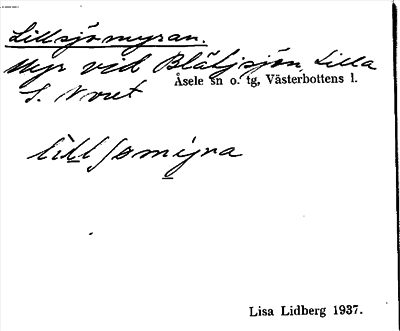 Lillsjömyran.
Myr vid Blåljsjön, Lilla
Åsele sn o. tg, Västerbottens l.
S. Noret
lillsömyra
Lisa Lidberg 1937.